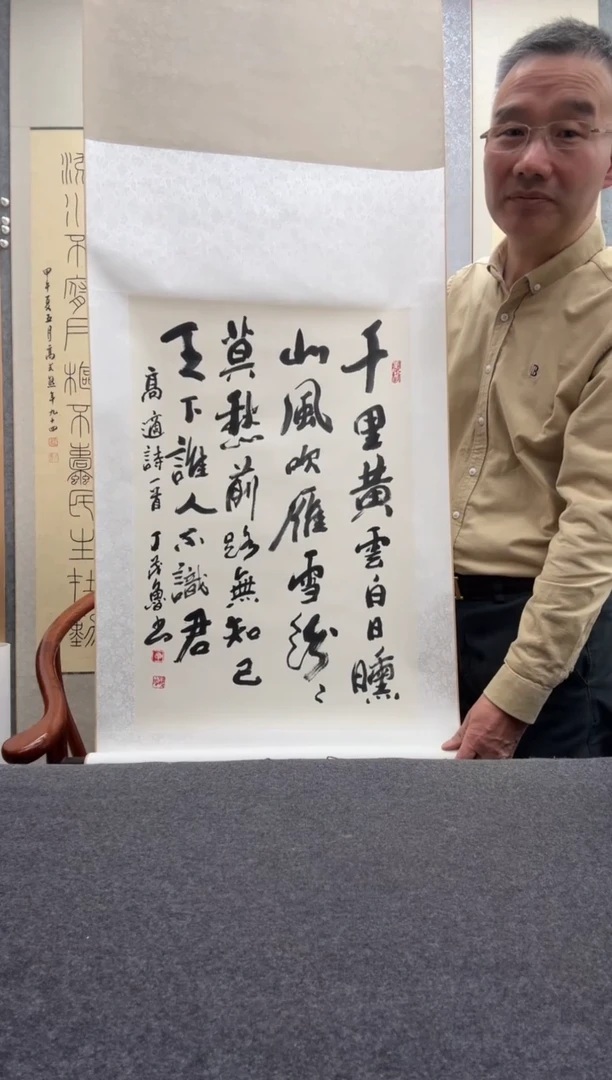 千里黃雲白日曛
北風吹雁雪紛〻
莫愁前路無知己
天下誰人不識君
高適詩一首 丁茂魯书
流水不腐户樞不蠹民生在勤
甲午夏五月高式熊年九十四